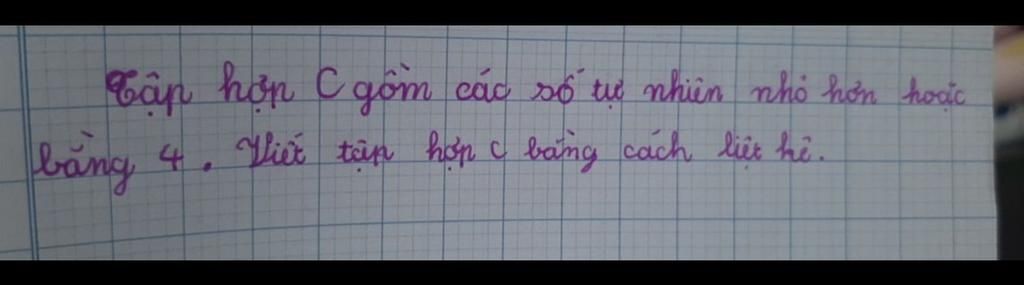 Tập hợp C gồm các số tự nhiên nhỏ hơn hoặc
bằng 4. Viết tập hợp C bằng cách liệt kê.